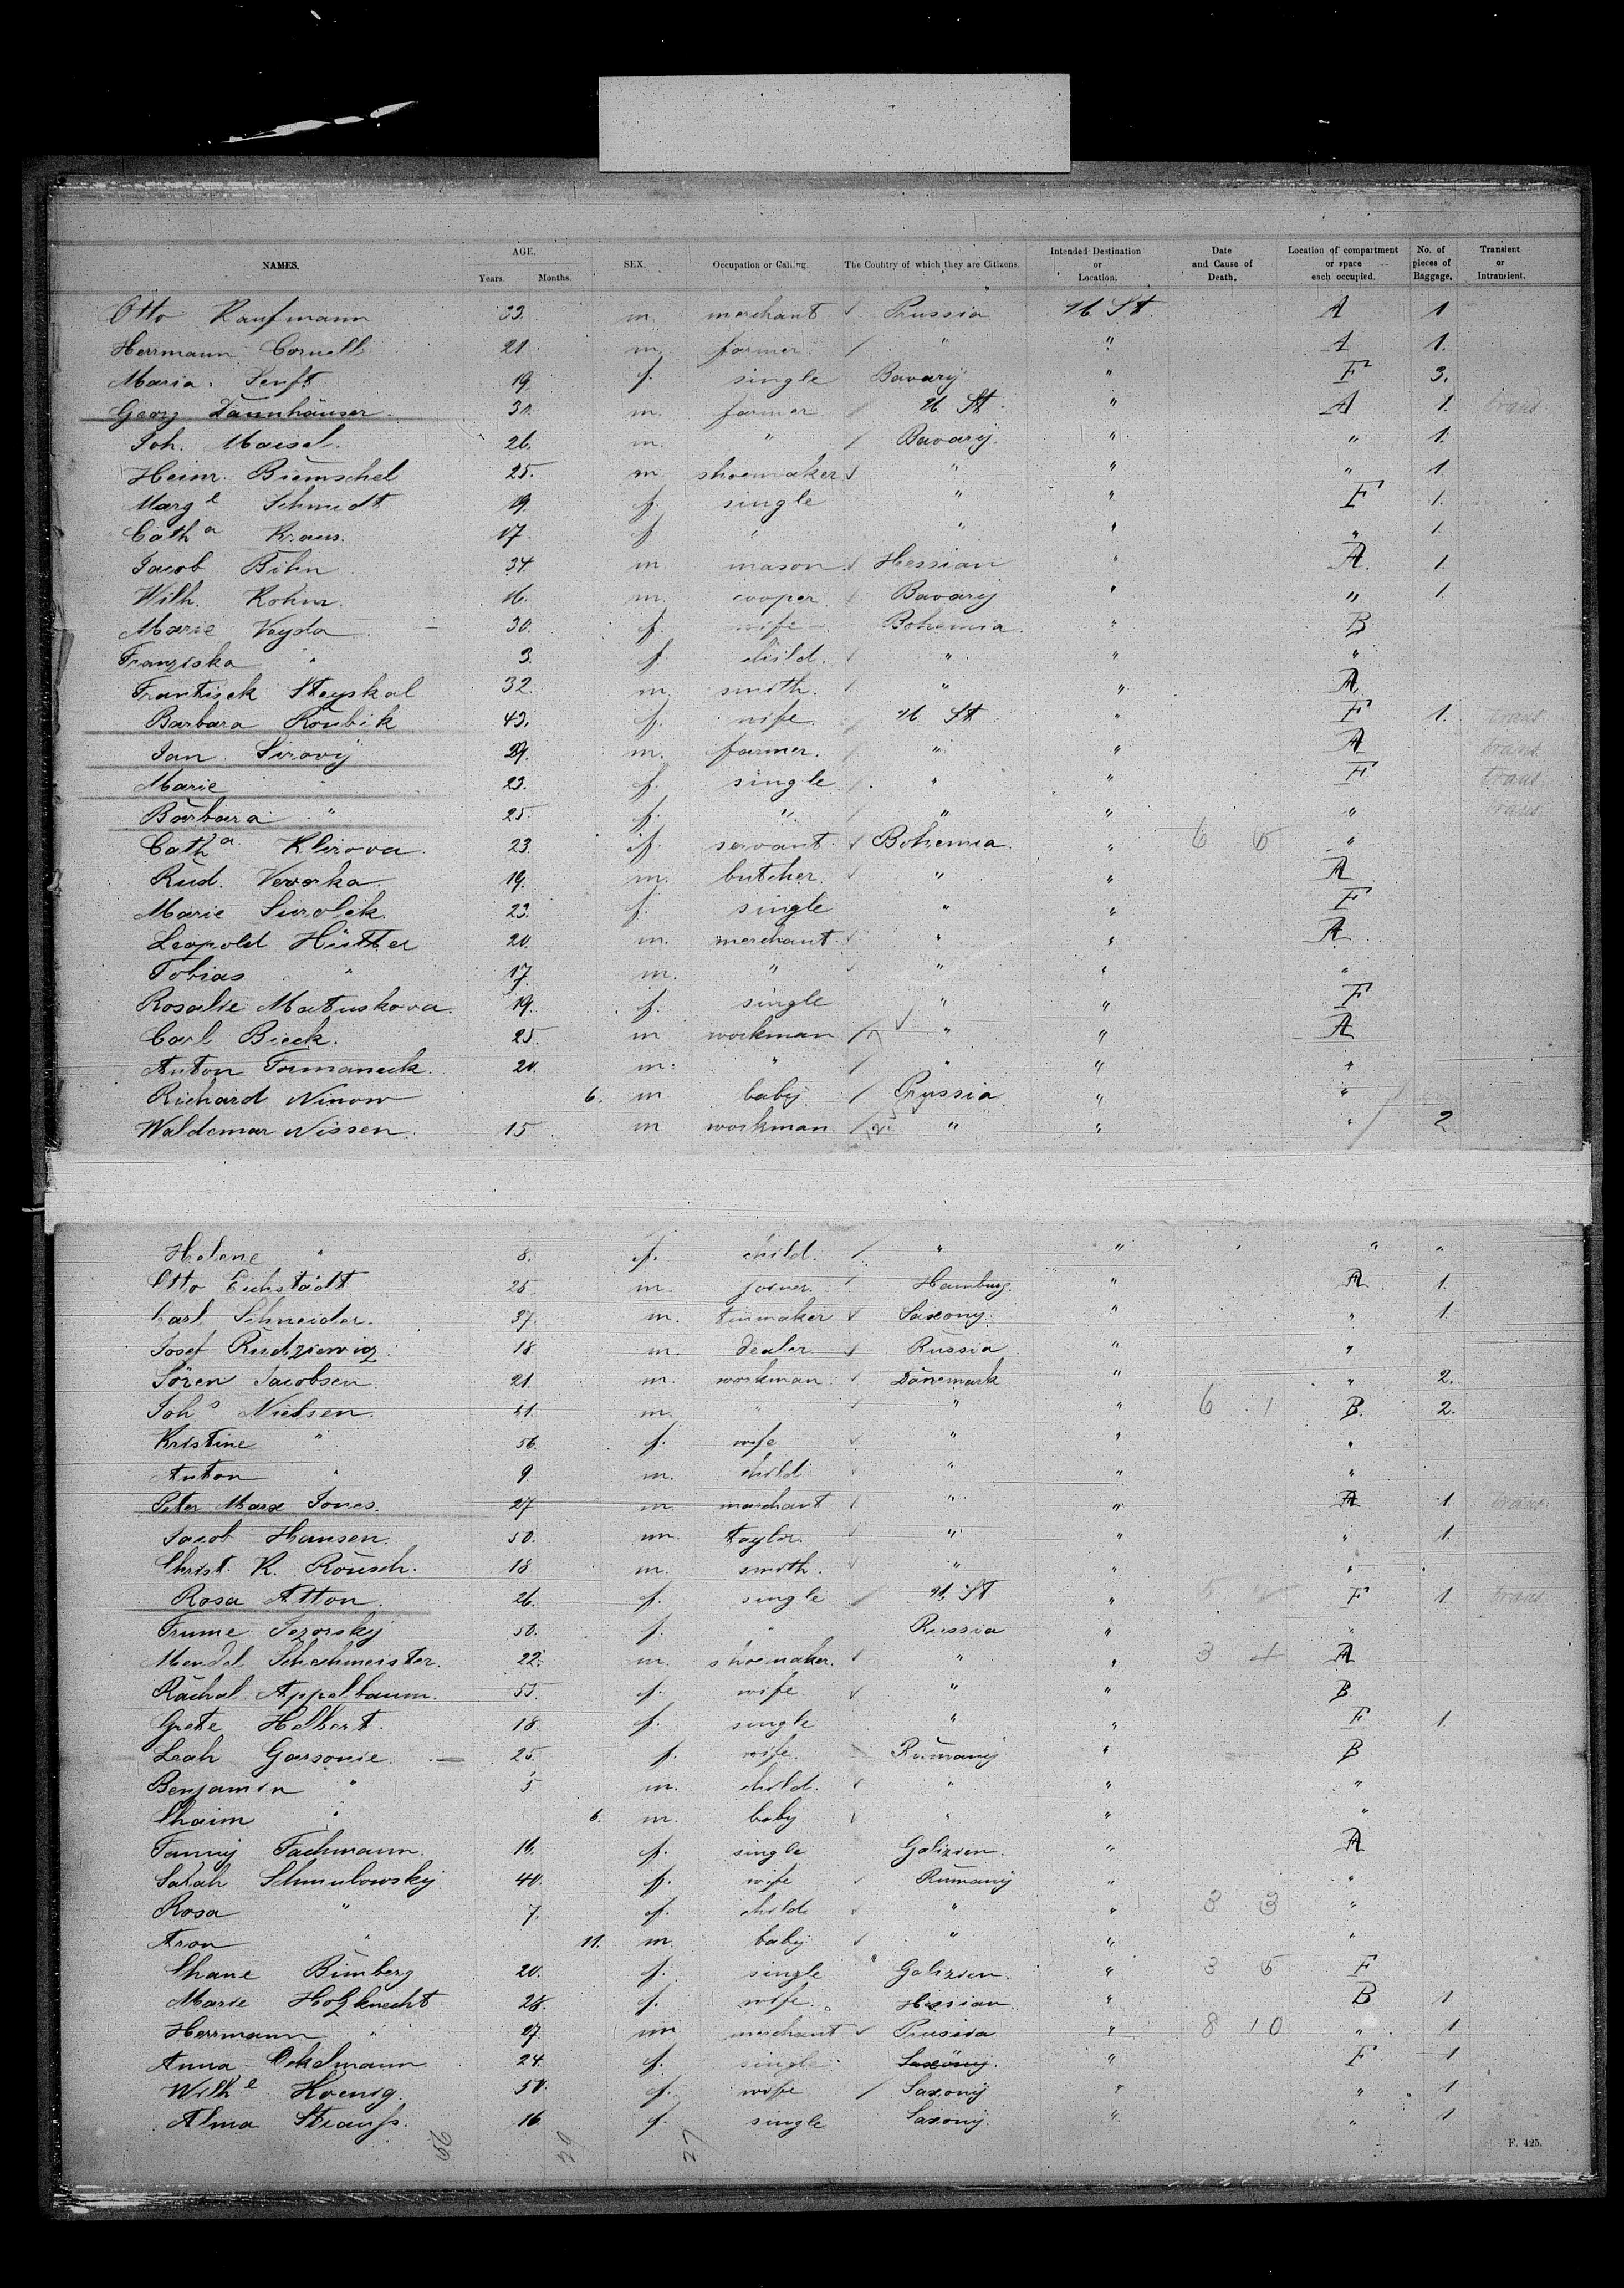 NAMES. AGE. Years. Months. SEX. Occupation or Calling. The Country of which they are Citizens. Intended Destination or Location. Date and Cause of Death. Location of compartment or space each occupied. No. of pieces of Baggage. Transient or Intransient.
Otto Kaufmann 33. m. merchant Prussia U St. A 1
Herrmann Cornell 21 m. farmer. " " A 1.
Maria Senft 19 f. single Bavary " F 3.
Georg Dannhäuser. 30. m. farmer U St. " A 1. trans.
Joh. Maisel. 26. m. " Bavary. " " 1.
Heinr. Biemschel 25. m shoemaker " " " 1.
Marg e Schmidt 19. f. single " " F 1.
Cath a Kraus. 17. f " " " " 1.
Jacob Bihn 34 m mason Hessian " A. 1.
Wilh. Kohm. 16. m. cooper Bavary " " 1.
Marie Veyda 30. f. wife Bohemia. " B
Franziska " 3. f. child. " " "
Frantisek Steyskal 32 m. smith. " " A
Barbara Roubik 43. f. wife U St. " F 1. trans
Jan Sirovy 29. m. farmer. " " A trans
Marie " 23. f. single " " F trans.
Barbara " 25. f. " " " " trans
Cath a Klirova. 23. f. servant Bohemia. " 6 6 "
Rud. Veverka. 19. m. butcher. " " A
Marie Surolik. 23. f. single " " F
Leopold Hütter 20. m. merchant. " " A
Tobias " 17. m. " " " "
Rosalie Matuskova. 19. f. single " " F
Carl Bieck. 25. m workman " " A
Anton Formaneck. 20. m. " " " "
Richard Ninow 6. m baby Prussia " "
Waldemar Nissen. 15 m workman. " " " 2
Helene " 8. f. child. " " " "
Otto Eichstädt 25 m. joiner. Hamburg. " A 1.
Carl Schneider. 37. m. tinmaker Saxony. " " 1.
Josef Rudziewicz 18 m. dealer Russia " "
Sören Jacobsen 21. m. workman Dänemark " " 2.
Joh s Nielsen. 51. m. " " " 6 1 B. 2.
Kristine " 56. f. wife " " "
Anton " 9. m. child " " "
Peter Marx Jones. 27 m. merchant " " A 1 trans.
Jacob Hansen. 50. m. taylor. " " " 1.
Christ. K. Rousch. 18 m. smith. " " "
Rosa Atton. 26. f. single U St " F 1 trans
Frume Jezorsky 50. f. " Russia " "
Mendel Schechmeister. 22. m. shoemaker. " " 3 4 A
Rachel Appelbaum. 55. f. wife " " B
Grete Helbert. 18. f. single " " F 1.
Leah Garsonie. 25. f. wife. Rumany " B
Benjamin " 5 m. child. " " "
Chaim " 6. m. baby " " "
Fanny Fachmann. 16. f. single Galizien. " A
Sarah Schmulowsky 40. f. wife Rumany " "
Rosa " 7. f. child " " 3 3 "
Aron " 11. m. baby " " "
Chane Bimberg 20. f. single Galizien. " 3 6 F
Marie Holzknecht 28. f. wife. Hessian. " B 1
Herrmann " 27. m merchant Prussia " 8 10 " 1
Anna Ockelmann 24. f. single Saxony. " F 1
Wilh e Koenig. 50. f. wife Saxony " " 1
Alma Strauss. 16. f. single Saxony. " " 1
F. 425.